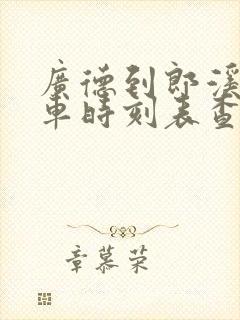 廣德到郎溪
車時刻表查
章慕榮